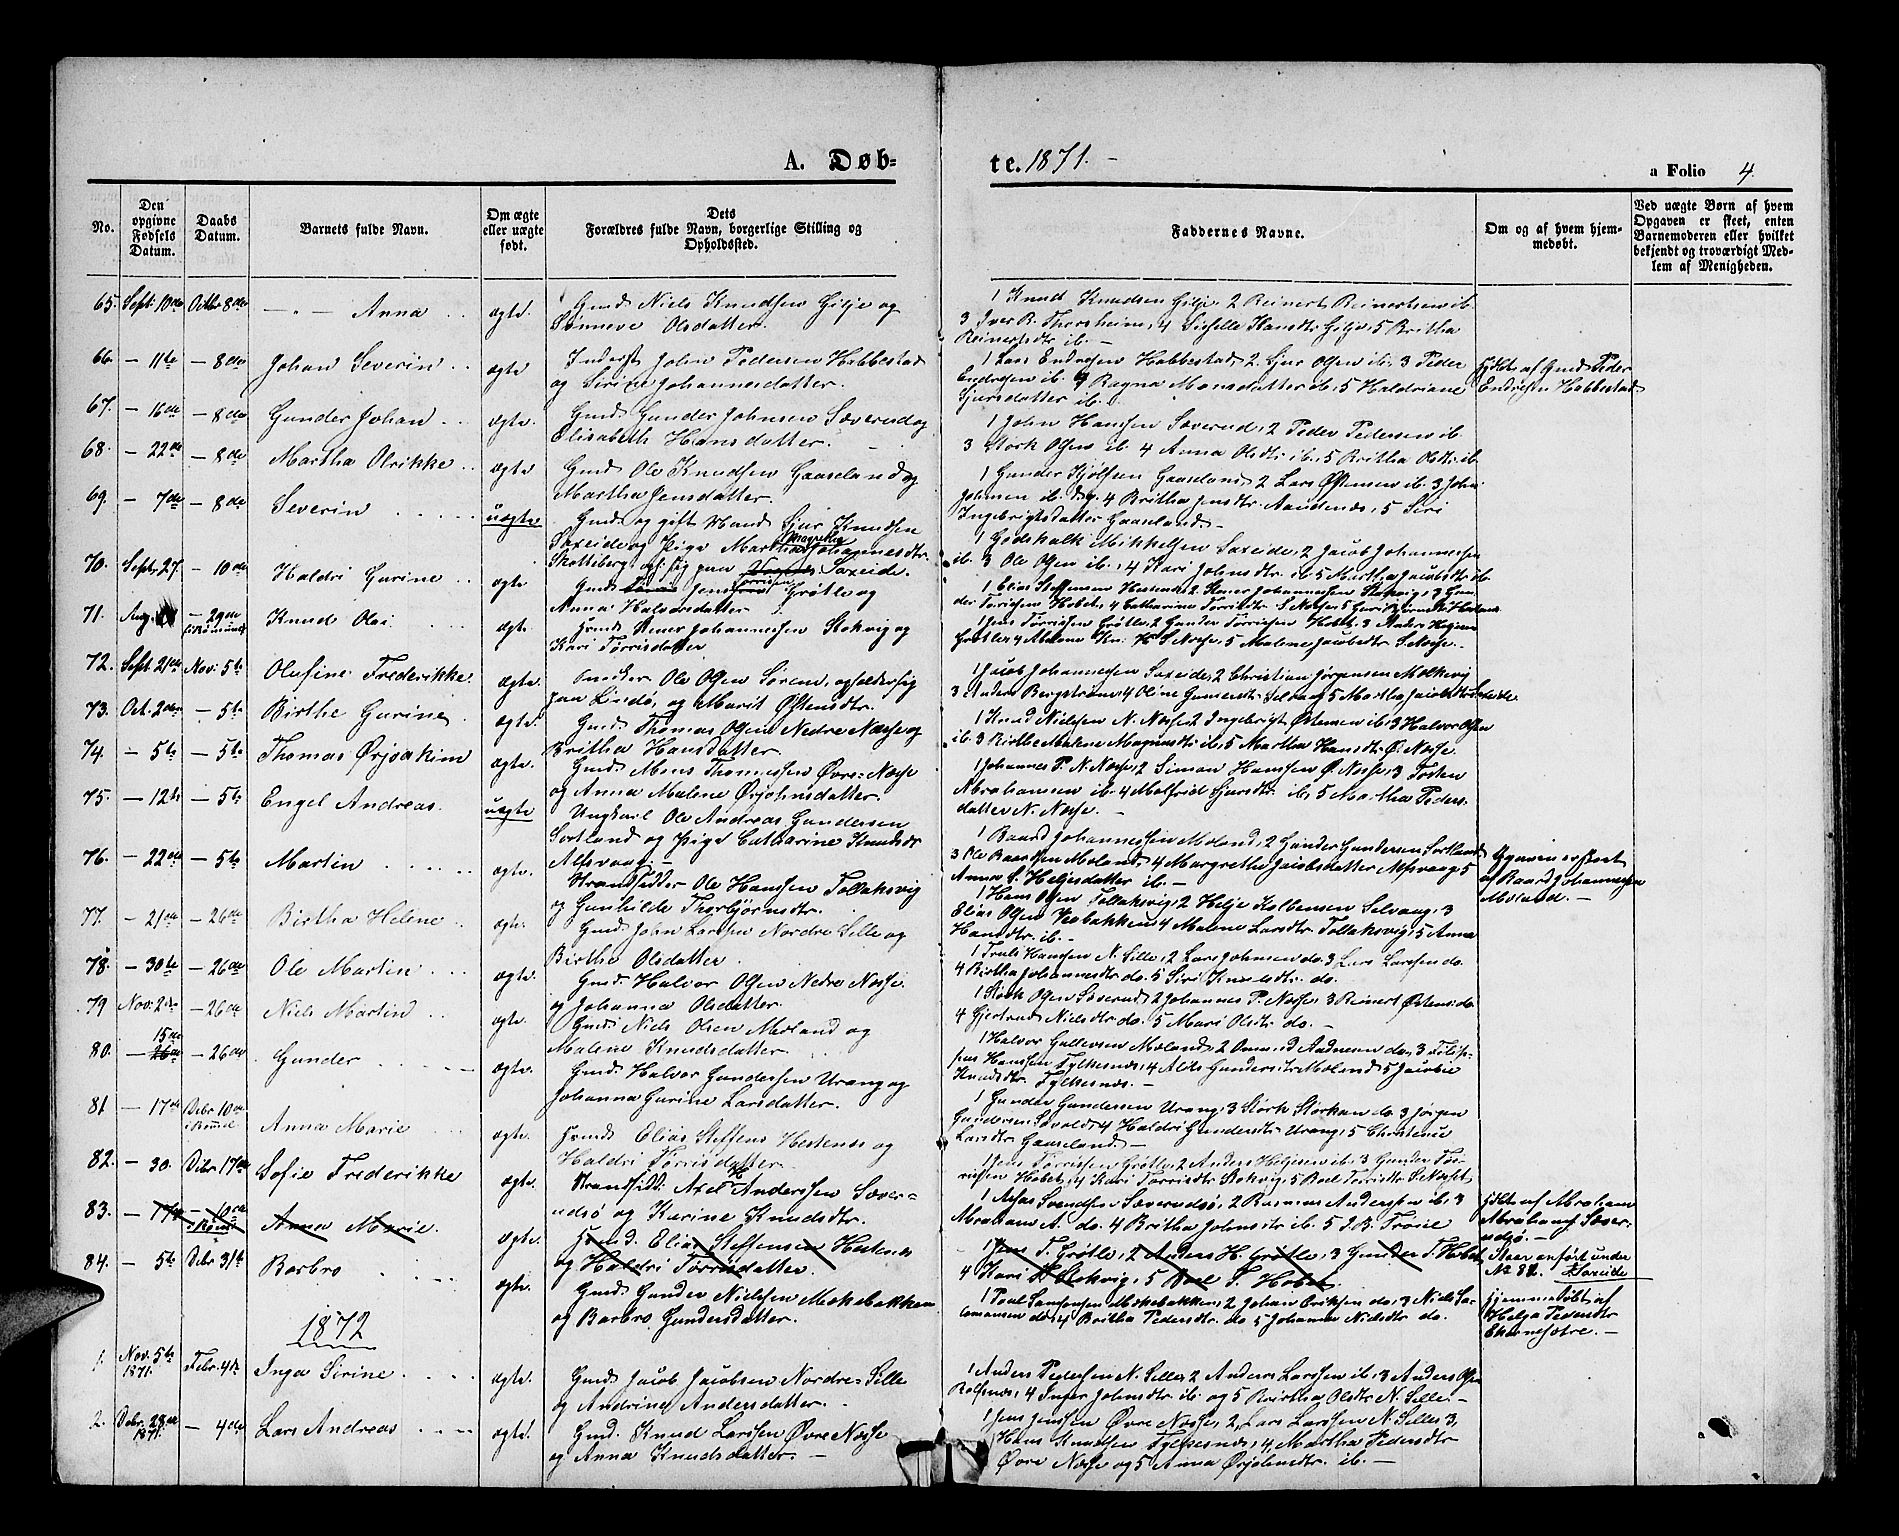 A. Døb=
te. 1871. -
a Folio 4.
No.
Den opgivne Fødsels Datum.
Daabs Datum.
Barnets fulde Navn.
Om ægte eller uægte født.
Dets Forældres fulde Navn, borgerlige Stilling og Opholdssted.
Faddernes Navne.
Om og af hvem hjemmedøbt.
Ved uægte Børn af hvem Opgaven er skeet, enten Barnemoderen eller hvilket bekjendt og troværdigt Medlem af Menigheden.
65. Sept. 10de Octbr 8de — " — Anna ægte.
Gmd. Niels Knudsen Gilje og
Sønneve Olsdatter.
1 Knud Knudsen Gilje, 2 Reinert Reinertsen ib.
3 Iver R. Thorsheim, 4 Sicelle Hansdtr Gilje, 5 Britha
Reinertsdtr ib. —
66. — 11te — 8de Johan Severin ægte
Inderst John Pedersen Habbestad
og Sirine Johannesdatter.
1 Lars Endresen Habbestad, 2 Sjur Olsen ib. 3 Peder
Endresen ib. 4 Ragna Monsdatter ib. 5 Haldriane
Sjursdatter ib.
Hjdbt af Gmd Peder
Endresen Habbestad
67. — 16de — 8de Gunder Johan ægte.
Gmd. Gunder Johnsen Sæverud og
Elisabeth Hansdatter.
1 John Hansen Sæverud, 2 Peder Pedersen ib.
3 Størk Olsen ib. 4 Anna Olsdtr. ib. 5 Britha Olsdtr. ib.
68. — 22de — 8de Martha Olrikke ægte.
Gmd. Ole Knudsen Gaasland og
Martha Jensdatter.
1 Gunder Kjølsen Gaasland, 2 Lars Østensen ib. 3 John
Johnsen ib. 4 Britha Jensdtr. Aandenæs, 5 Siri
Ingebrigtsdatter Gaasland. —
69. — 7de — 8de Severin uægte
Gmd. og gift Mand Sjur Knudsen
Saxeide og Pige Martha Johannesdtr.
Saxeide.
1 Godskalk Mikkelsen Saxeide, 2 Jacob Johannessen
ib. 3 Ole Olsen ib., 4 Kari Johnsdtr. ib. 5 Martha Jacobsdtr ib.
70. Septr 27. — 10de Haldri Gurine ægte
Gmd. Jens Tørrisen Grøtle og
Anna Halvorsdatter
1 Elias Steffensen Hestenæs, 2 Stener Johannesen Stokvig, 3 Gunder Tørrisen Hobet, 4 Catharine Tørrisdtr. S. Næsse, 5
71. Aug. — 29de Knud Olai ægte.
Gmd. Stener Johannessen Stokvig og
Kari Tørrisdatter
1 Jens Tørrisen Grøtle, 2 Gunder Tørrisen Hobet, 3 Anders Helgesen
Grøtle, 4 Malene Kn. S. Næsse, 5 Malene Jacobsdtr. S. Næsse.
72. Sept 21de Nov: 5te Olufine Frederikke. ægte.
Snedker Ole Olsen Sørem, opholder sig
paa Lindø, og Marit Østensdtr.
1 Jacob Johannessen Saxeide, 2 Christian Jørgensen Molkevig
3 Anders Bergstrøm, 4 Oline Gunnersdtr. Selvaag, 5 Martha Jacobsdtr. Saxeide.
73. Oct. 2den — 5te Birthe Gurine ægte.
Gmd. Thomas Olsen Nedre Næsse og
Britha Hansdatter.
1 Knud Nielsen N. Næsse, 2 Ingebrigt Østensen ib. 3 Halvor Olsen
ib. 3 Birthe Malene Magnusdtr. ib., 5 Martha Hansdtr. Ø. Næsse.
74. — 5te — 5te Thomas Ørjoakim ægte.
Gmd. Mons Thomassen Øvre=Næsse
og Anna Malene Ørjohnsdatter.
1 Johannes P. N. Næsse, 2 Simon Hanssen Ø. Næsse, 3 Tosten
Abrahamsen ib. 4 Malfrid Sjursdtr. ib., 5 Martha Pedersdatter N. Næsse. —
75. — 12te — 5te Engel Andreas. uægte
Ungkarl Ole Andreas Gundersen
Sortland og Pige Catharine Knudsdr
Alsvaag. —
1 Baard Johannessen Moland, 2 Gunder Gundersen Sortland,
3 Ole Baardsen Moland, 4 Margrethe Jacobsdatter Alsvaag, 5
Anna S. Helgesdatter ib. —
Opgaven er skeet
af Baard Johannessen
Moland. —
76. — 22de — 5te Martin ægte.
Strandsidder Ole Hanssen Tollaksvig
og Gunhilde Thorbjørnsdtr.
1 Hans Olsen Tollaksvig, 2 Helje Kolbensen Selvaag, 3
Elias Olsen Vesbakken, 4 Malene Larsdtr. Tollaksvig, 5 Anna
Hansdtr. ib. —
77. — 21de — 26de Birtha Helene ægte.
Gmd. John Larssen Nordre Selle og
Birthe Olsdatter.
1 Truls Hanssen N. Sille, 2 Lars Johnsen do. 3 Lars Larssen do.
4 Birtha Johannesdtr. do. 5 Siri Knudsdtr. do.
78. — 30te — 26de Ole Martin ægte.
Gmd. Halvor Olsen Nedre Næsse.
og Johanna Olsdatter.
1 Størk Olsen Sæverud, 2 Johannes P. Næsse, 3 Reinert Østens. do.
4 Gjertrud Nielsdtr do. 5 Mari Olsdtr. do. —
79 Nov. 2den — 26de Niels Martin ægte.
Gmd. Niels Olsen Moland og
Malene Knudsdatter.
1 Halvor Gullevsen Moland, 2 Omund Aadnesen do. 3 Filip-
pus Hanssen Fylkesnæs, 4 Alida Gundersdtr Moland, 5 Jacobie
Knudsdtr. Fylkesnæs. —
80. 15de — 26de — 26de Gunder ægte.
Gmd. Halvor Gundersen Urang og
Johanna Gurine Larsdatter.
1 Gunder Gundersen Urang, 3 Størk Størksen do. 3 Jørgen
Gundersen Løvold, 4 Haldri Gundersdtr. Urang, 5 Christense
Larsdtr. Gaasland. —
81 — 17de Debr 10de Anna Marie ægte.
Gmd. Elias Steffens. Hestenæs og
Haldri Tørrisdatter.
1 Jens Tørrissen Grøtle, 2 Anders Helgesen ib. 3 Gunder Tør-
rissen Hobet, 4 Kari Tørrisdtr Stokvig, 5 Boel Tørrisdtr
82. — 30. Debr 17de Sofie Frederikke ægte.
Strandsidd. Axel H Anderssen Sæver=
udsø og Karine Knudsdtr.
1 Aslas Svendsen Sæverudsø, 2 Rasmus Andersen ib. 3
Abraham A. do. 4 Britha Johnsdtr ib. 5 J. B. Troie
Hjdbt af Abraham
Abrahams. Sæver-
udsø. —
83. — 17de — 10de Anna Marie. ægte.
Gmd. Elias Steffensen Hestenæs
og Haldri Tørrisdatter.
1 Jens T. Grøtle, 2 Anders H. Grøtle, 3 Gunder T. Hobet,
4 Kari Stokvig, 5 Boel T. Hobet.
Staar anført under
No 81. Saxeide
84. — 5te Debr 31te Barbro ægte.
Gmd. Gunder Nielssen Mækebakken
og Barbro Gundersdatter.
1 Poul Samsonsen Mækebakken, 2 Johan Eriksen do. 3 Niels Sa-
lomonsen do, 4 Britha Pedersdtr. do 5 Johanna Nielsdtr do.
Hjemmedøbt af
Helga Pedersdtr
Ekornsætre. —
1872
1. Nov. 5te 1871. Febr. 4de Inga Sirine ægte.
Gmd. Jacob Jacobsen Nordre=Sille
og Andrine Andersdatter. —
1 Anders Pedersen N. Selle, 2 Anders Larssen ib. 3 Anders Olsen
Rolfsnæs, 4 Inger Johnsdtr. ib. og 5 Birtha Olsdtr N. Sille. —
2. Debr. 28de 1871. — 4de Lars Andreas ægte.
Gmd. Knud Larssen Øvre Næsse
og Anna Knudsdatter. —
1 Jens Jenssen Øvre Næsse, 2, Lars Larssen N. Selle, 3,
Hans Knudsen Fylkesnæs, 4, Martha Pedersdtr
Øvre Næsse og 5 Anna Ørjohnsdtr. ib. —